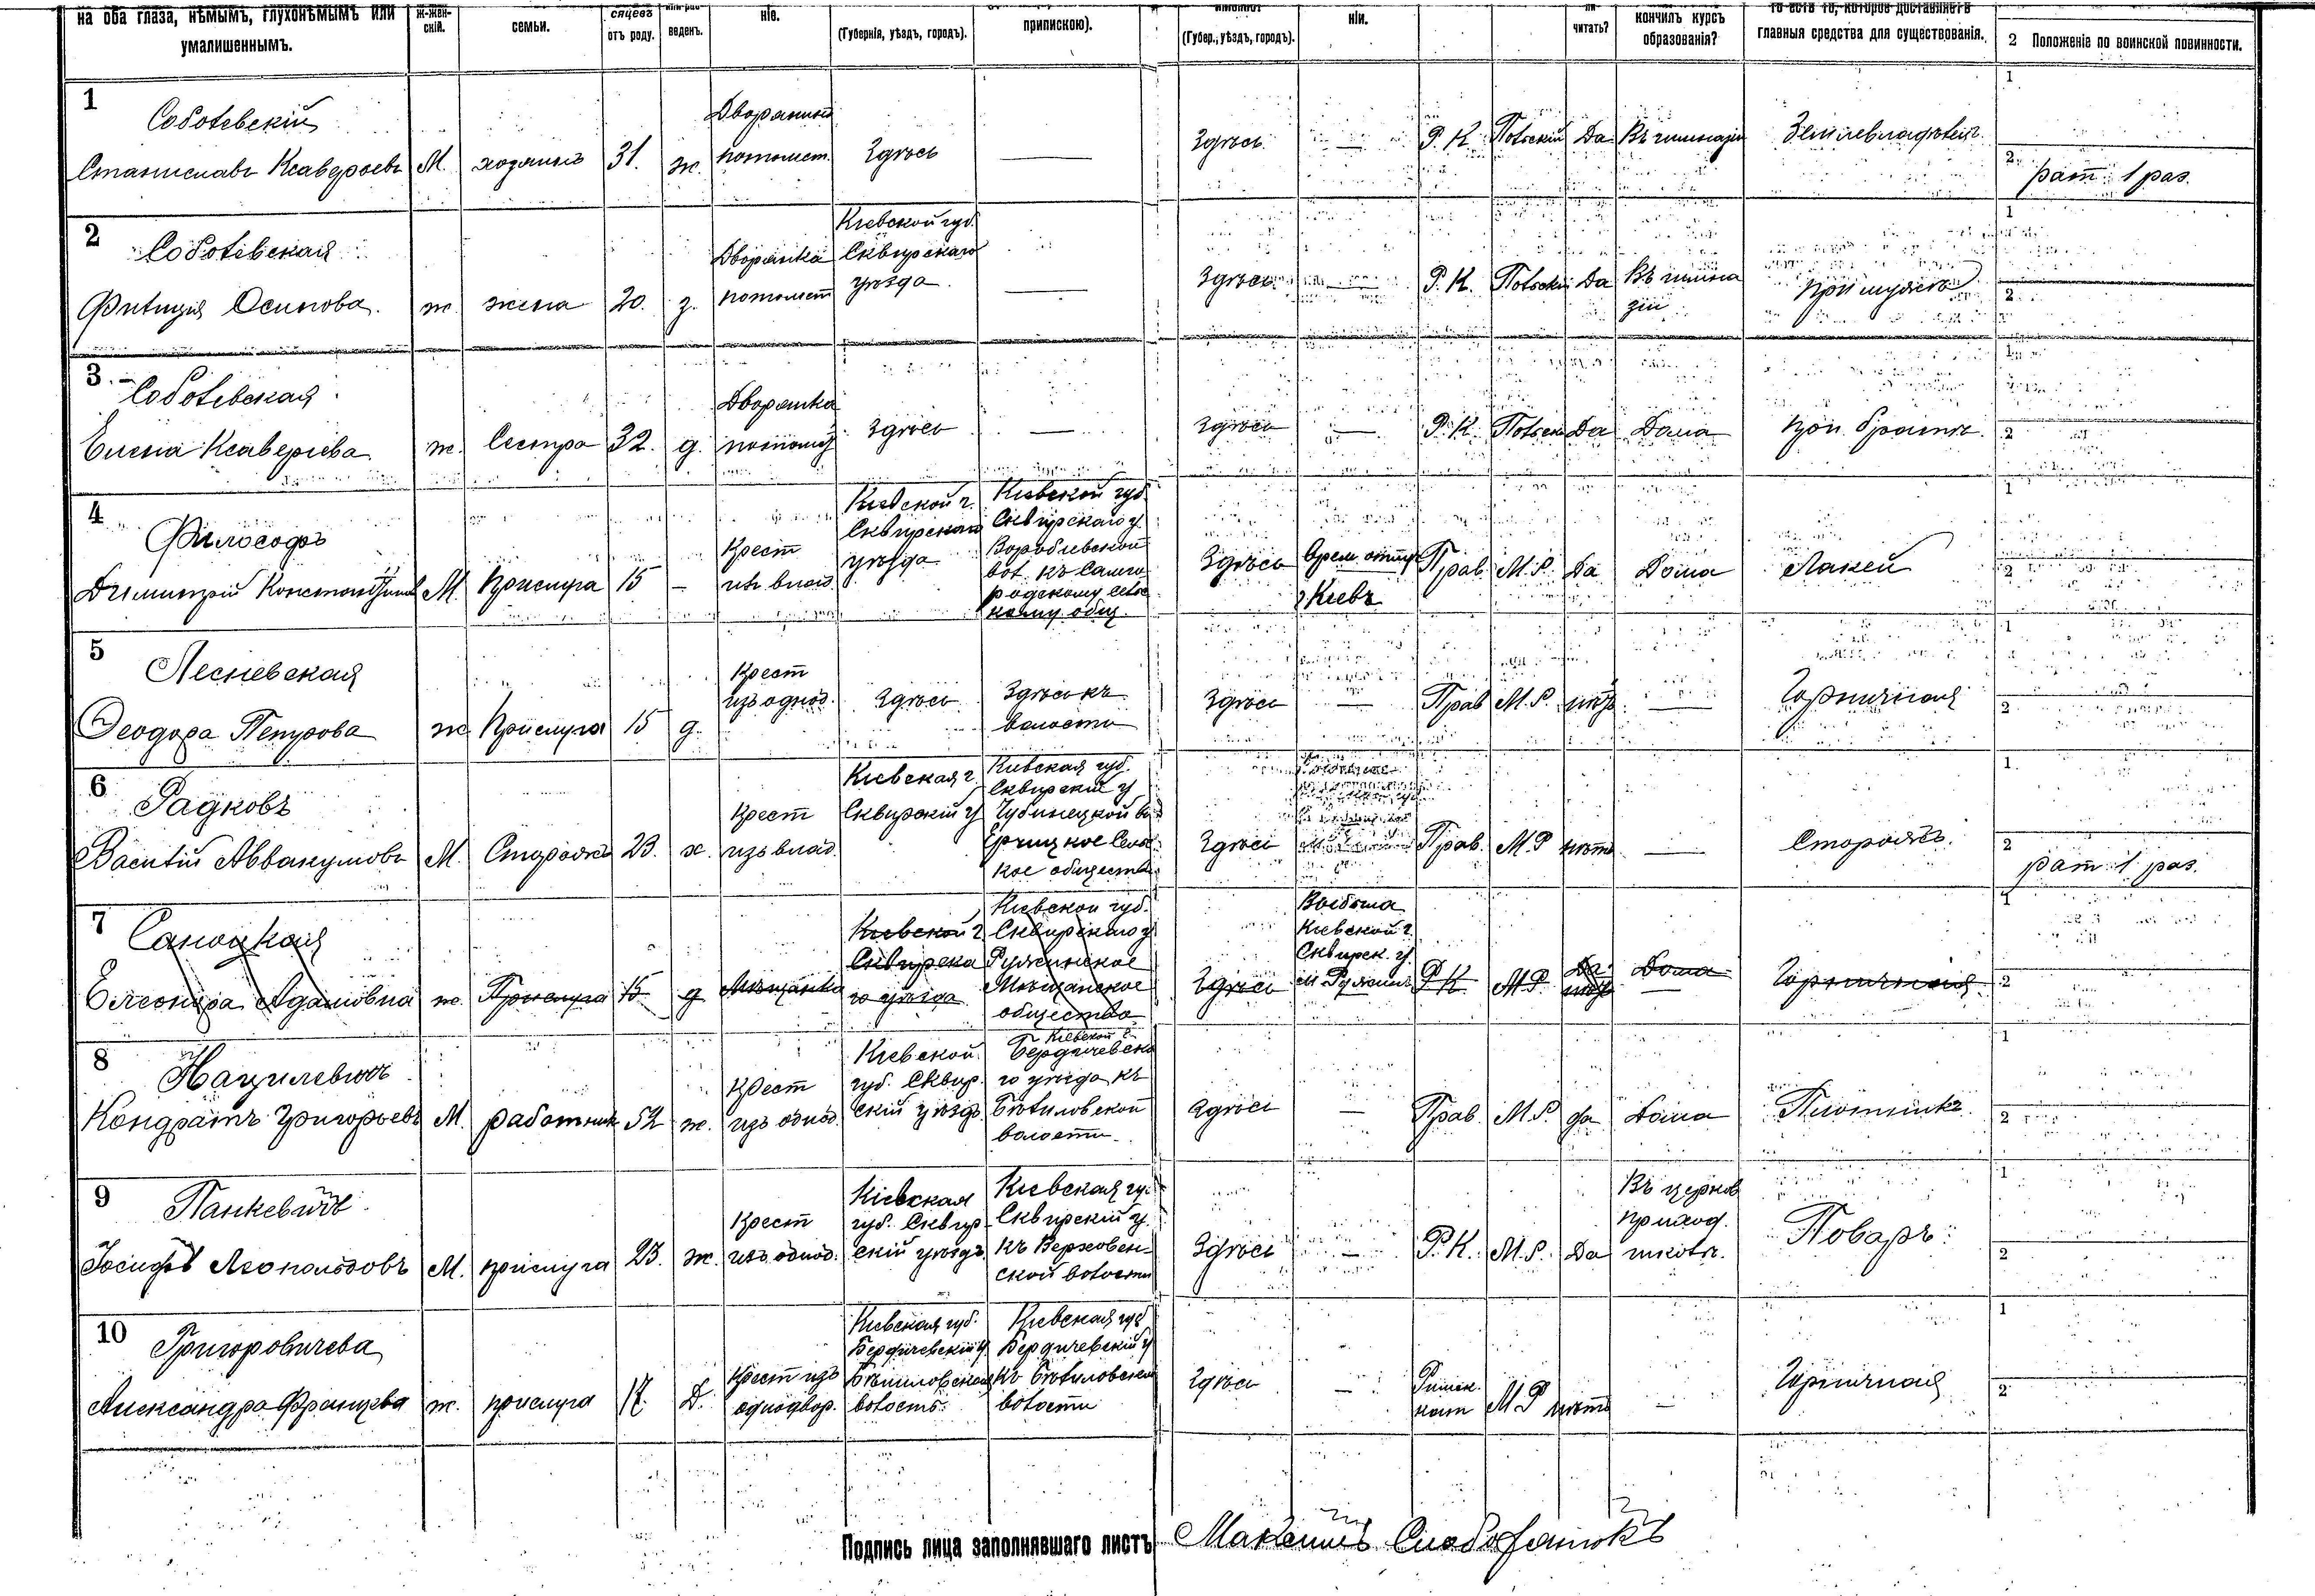 на оба глаза, нѣмымъ, глухонѣмымъ или умалишеннымъ.
ж-жен-скій.
семьи.
отъ роду.
веденъ.
ніе.
(Губернія, уѣздъ, городъ).
припискою).
(Губер., уѣздъ, городъ).
ніи.
читать?
кончилъ курсъ образованія?
то есть то, которое доставляетъ главныя средства для существованія.
2 Положеніе по воинской повинности.
1
Соболевскій
Станиславъ Ксаверьевъ М. хозяинъ 31. ж. Дворянинъ потомст. Здѣсь — Здѣсь — Р. К. Польскій Да Въ гимназіи Землевладѣлецъ
1
2 рат. 1 раз.
2
Соболевская
Фелиція Осипова. ж. жена 20. з. Дворянка потомст Кіевской губ. Сквирскаго уѣзда — Здѣсь — Р. К. Польскій Да Въ гимназіи При мужѣ
1
2
3
Соболевская
Елена Ксаверіева ж. Сестра 32. д. Дворянка потом Здѣсь — Здѣсь — Р. К. Польск Да Дома При братѣ.
1
2
4
Философъ
Димитрій Константинов М. Прислуга 15 — Крест изъ влад. Кіевской г. Сквирскаго уѣзда Кіевской губ. Сквирскаго у. вол. къ
кому общ. Здѣсь Врем отлуч г Кіевъ Прав. М. Р. Да Дома Лакей
1
2
5
Лесневская
Ѳеодора Петрова ж. Прислуга 15 д. Крест изъ однод. Здѣсь Здѣсь къ волости Здѣсь — Прав М. Р. нѣтъ — Горничная
1
2
6
Радковъ
Василій Аввакумовъ М. Сторожъ 23. ж. Крест изъ влад. Кіевская г. Сквирскій у Кіевская губ. Сквирскій у Чубинецкой вол Ерчицкое Сельское общество Здѣсь Прав. М. Р нѣтъ — Сторожъ.
1
2 рат. 1 раз.
7
Саноцкая
Елеонора Адамовна ж. Прислуга 15 д Мѣщанка Кіевской г Сквирскаго уѣзда Кіевской губ. Сквирскаго у Ружинское Мѣщанское общество Здѣсь Выбыла Кіевской г. Сквирск. у. м Ружинъ Р. К М Р Да нѣтъ Дома Горничная
1
2
8
Нацилевичъ
Кондратъ Григорьевъ М. работник 52 ж. Крест изъ однод. Кіевской губ. Сквирскій уѣздъ Кіевской г. Бердичевскаго уѣзда къ Бѣлиловской волости. Здѣсь — Прав. М. Р. да Дома Плотникъ.
1
2
9
Панкевичъ
Іосифъ Леопольдовъ М. прислуга 23. ж. Крест изъ однод. Кіевская губ. Сквирскій уѣздъ. Кіевская гу. Сквирскій у. къ Верховенской волости Здѣсь — Р. К. М. Р. Да Въ церков приход. школѣ. Поваръ.
1
2
10
Григоровичева
Александра Францева ж. прислуга 17. Д. Крест изъ однодвор. Кіевская губ. Бердичевскій у Бѣлиловская волость. Кіевская губ Бердичевскій у къ Бѣлиловской волости Здѣсь — Римск. кат М Р нѣтъ — Горничная
1
2
Подпись лица заполнявшаго листъ
Максимъ